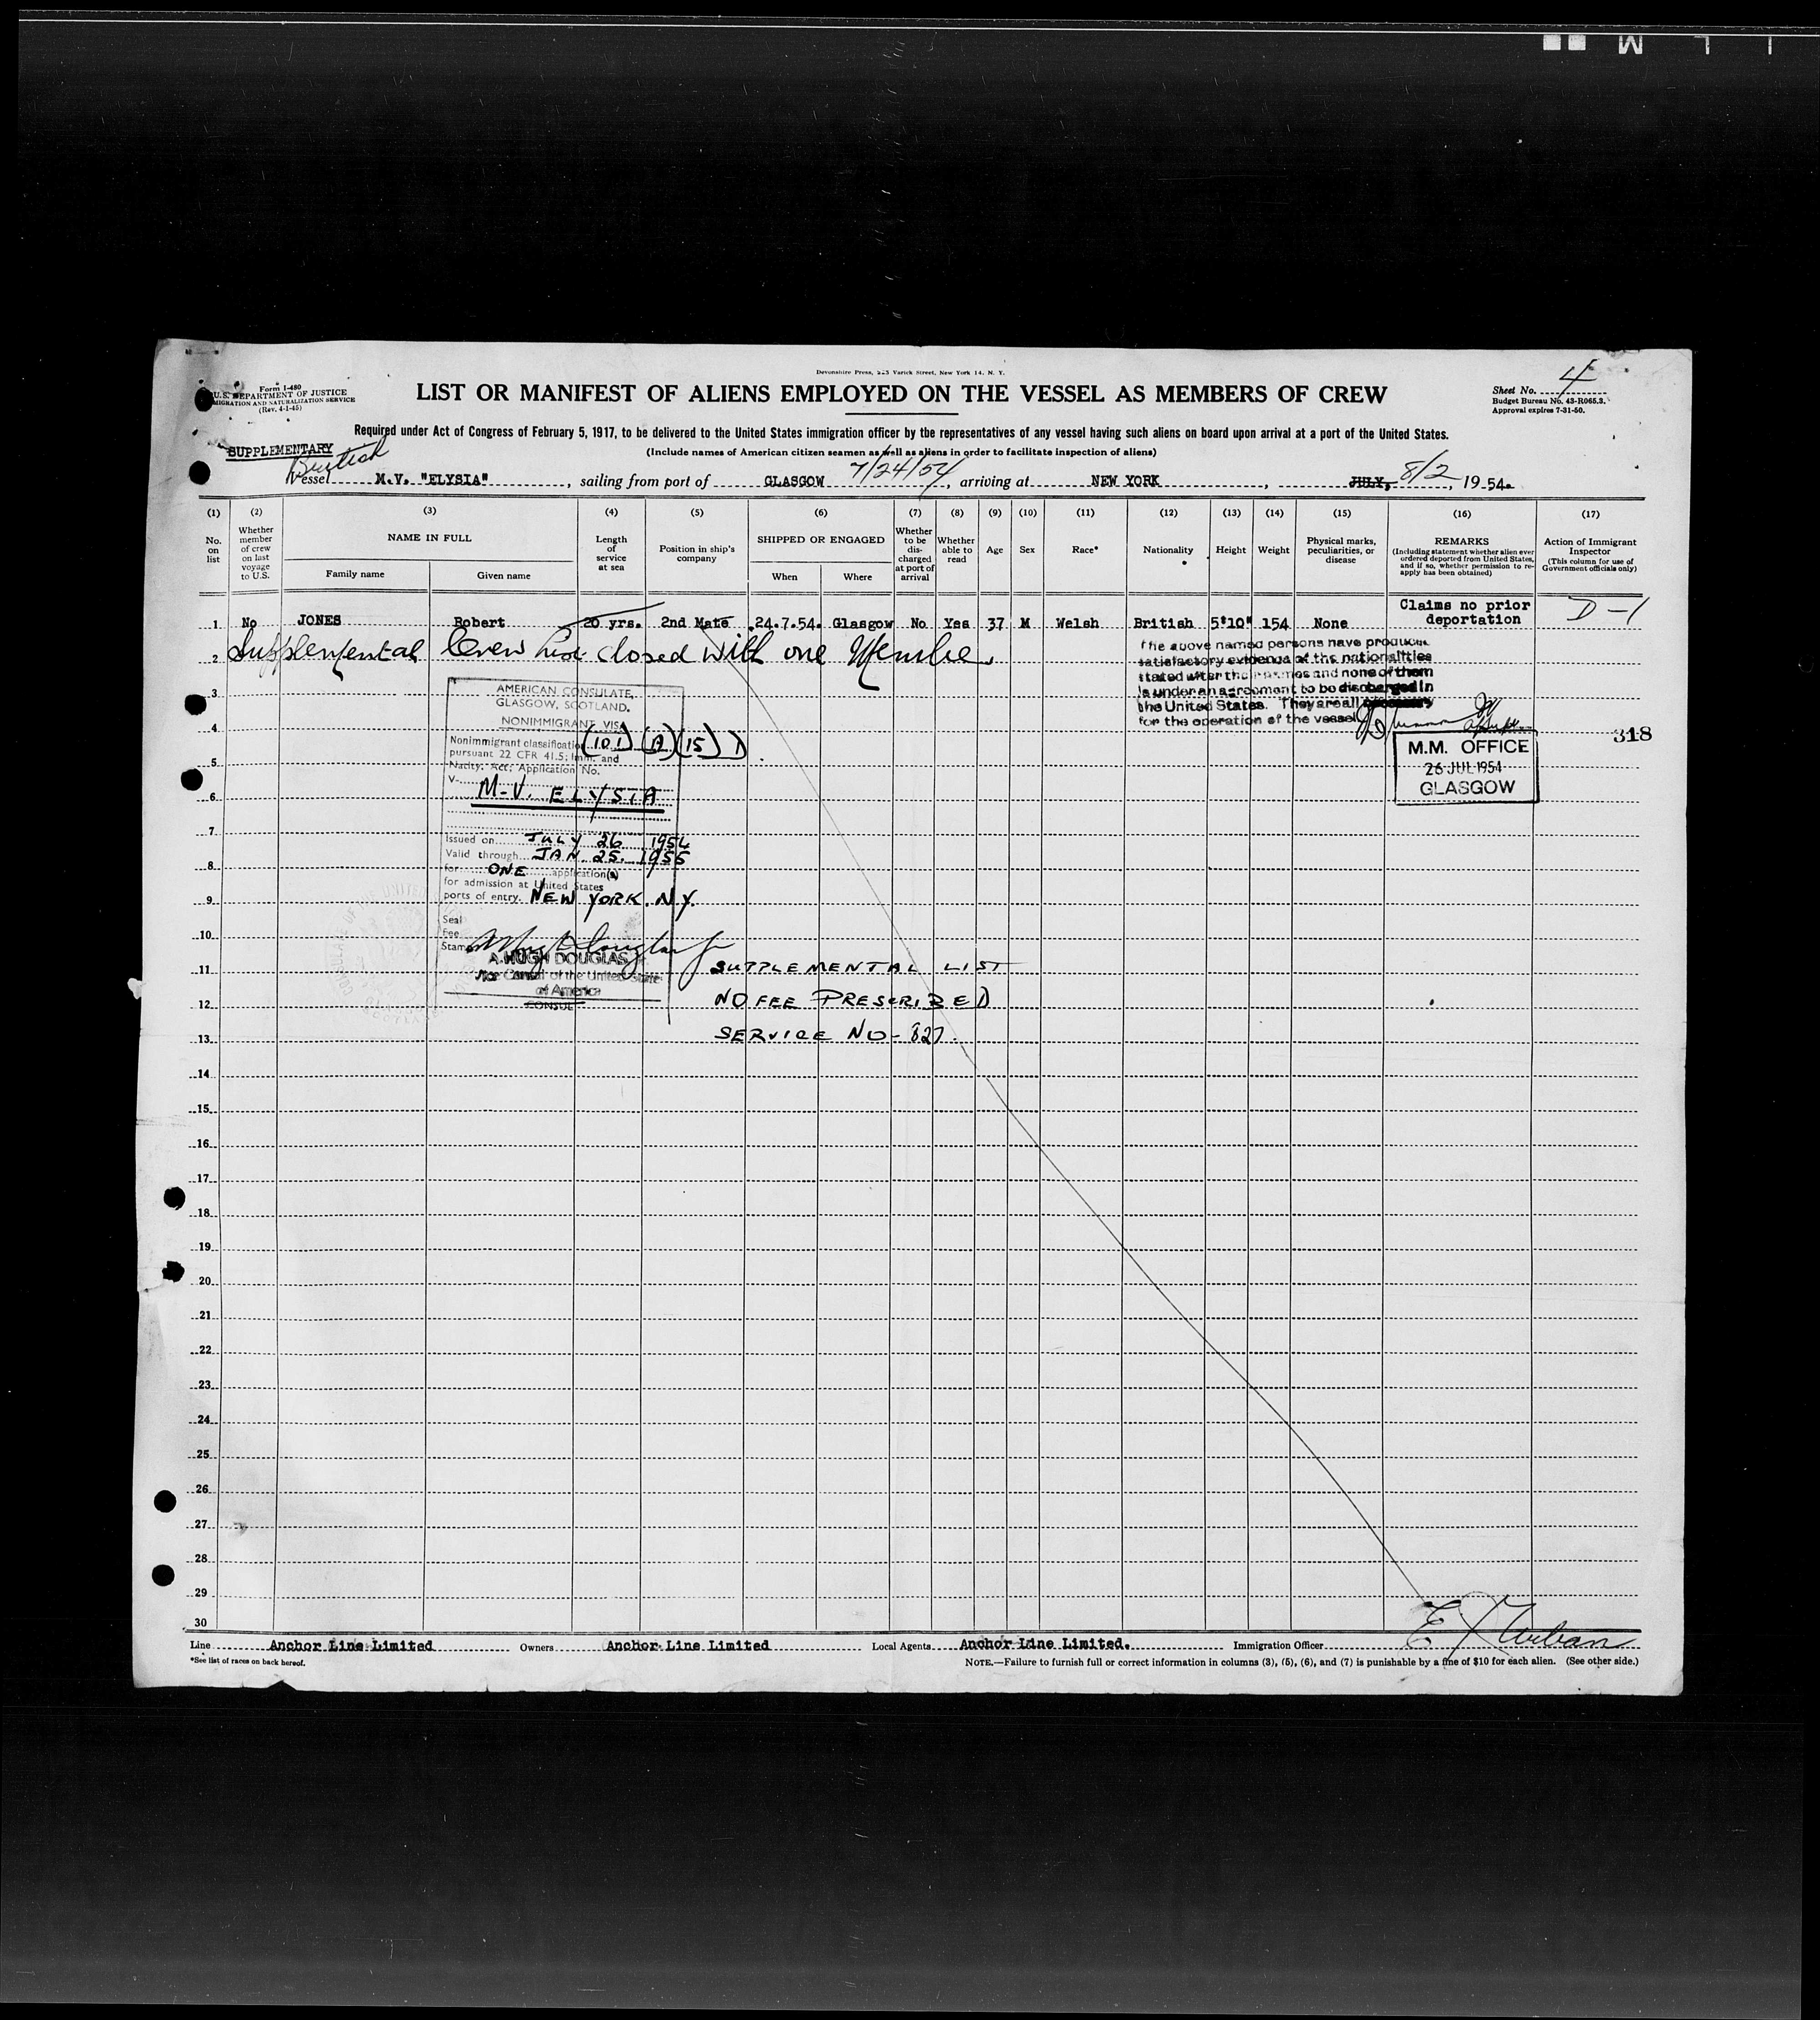 Devonshire Press, 223 Varick Street, New York 14, N. Y.
Form I-480
U.S. DEPARTMENT OF JUSTICE
IMMIGRATION AND NATURALIZATION SERVICE
(Rev. 4-1-45)
LIST OR MANIFEST OF ALIENS EMPLOYED ON THE VESSEL AS MEMBERS OF CREW
Sheet No. 4
Budget Bureau No. 43-R065.3.
Approval expires 7-31-50.
Required under Act of Congress of February 5, 1917, to be delivered to the United States immigration officer by the representatives of any vessel having such aliens on board upon arrival at a port of the United States.
SUPPLEMENTARY
(Include names of American citizen seamen as well as aliens in order to facilitate inspection of aliens)
British
Vessel M.V. "ELYSIA", sailing from port of GLASGOW 7/24/54, arriving at NEW YORK, JULY, 8/2, 1954.
(1) (2) (3) (4) (5) (6) (7) (8) (9) (10) (11) (12) (13) (14) (15) (16) (17)
No. on list
Whether member of crew on last voyage to U.S.
NAME IN FULL
Family name
Given name
Length of service at sea
Position in ship's company
SHIPPED OR ENGAGED
When
Where
Whether to be discharged at port of arrival
Whether able to read
Age
Sex
Race*
Nationality
Height
Weight
Physical marks, peculiarities, or disease
REMARKS
(Including statement whether alien ever ordered deported from United States, and if so, whether permission to reapply has been obtained)
Action of Immigrant Inspector
(This column for use of Government officials only)
1 No JONES Robert 20 yrs. 2nd Mate 24.7.54. Glasgow No Yes 37 M Welsh British 5'10" 154 None Claims no prior deportation D-1
2 Supplemental Crew List closed with one Member
The above named persons have produced
satisfactory evidence of the nationalities
stated after their names and none of them
is under an agreement to be discharged in
the United States. They are all necessary
for the operation of the vessel
318
M.M. OFFICE
26 JUL 1954
GLASGOW
AMERICAN CONSULATE,
GLASGOW, SCOTLAND.
NONIMMIGRANT VISA
Nonimmigrant classification (101) (A) (15) D
pursuant 22 CFR 41.5; Imm. and
Natlty. Act; Application No.
V-
M.V. ELYSIA
Issued on JULY 26 1954
Valid through JAN. 25. 1955
for ONE application(s)
for admission at United States
ports of entry. NEW YORK. N.Y.
Seal
Fee
Stamp
A. HUGH DOUGLAS
Vice Consul of the United States
of America
CONSUL
SUPPLEMENTAL LIST
NO FEE PRESCRIBED
SERVICE NO- 827.
3
4
5
6
7
8
9
10
11
12
13
14
15
16
17
18
19
20
21
22
23
24
25
26
27
28
29
30
Line Anchor Line Limited Owners Anchor Line Limited Local Agents Anchor Line Limited. Immigration Officer
*See list of races on back hereof.
NOTE.—Failure to furnish full or correct information in columns (3), (5), (6), and (7) is punishable by a fine of $10 for each alien. (See other side.)